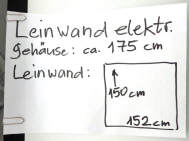 Leinwand elektr.
Gehäuse: ca. 175 cm
Leinwand:
150 cm
152 cm